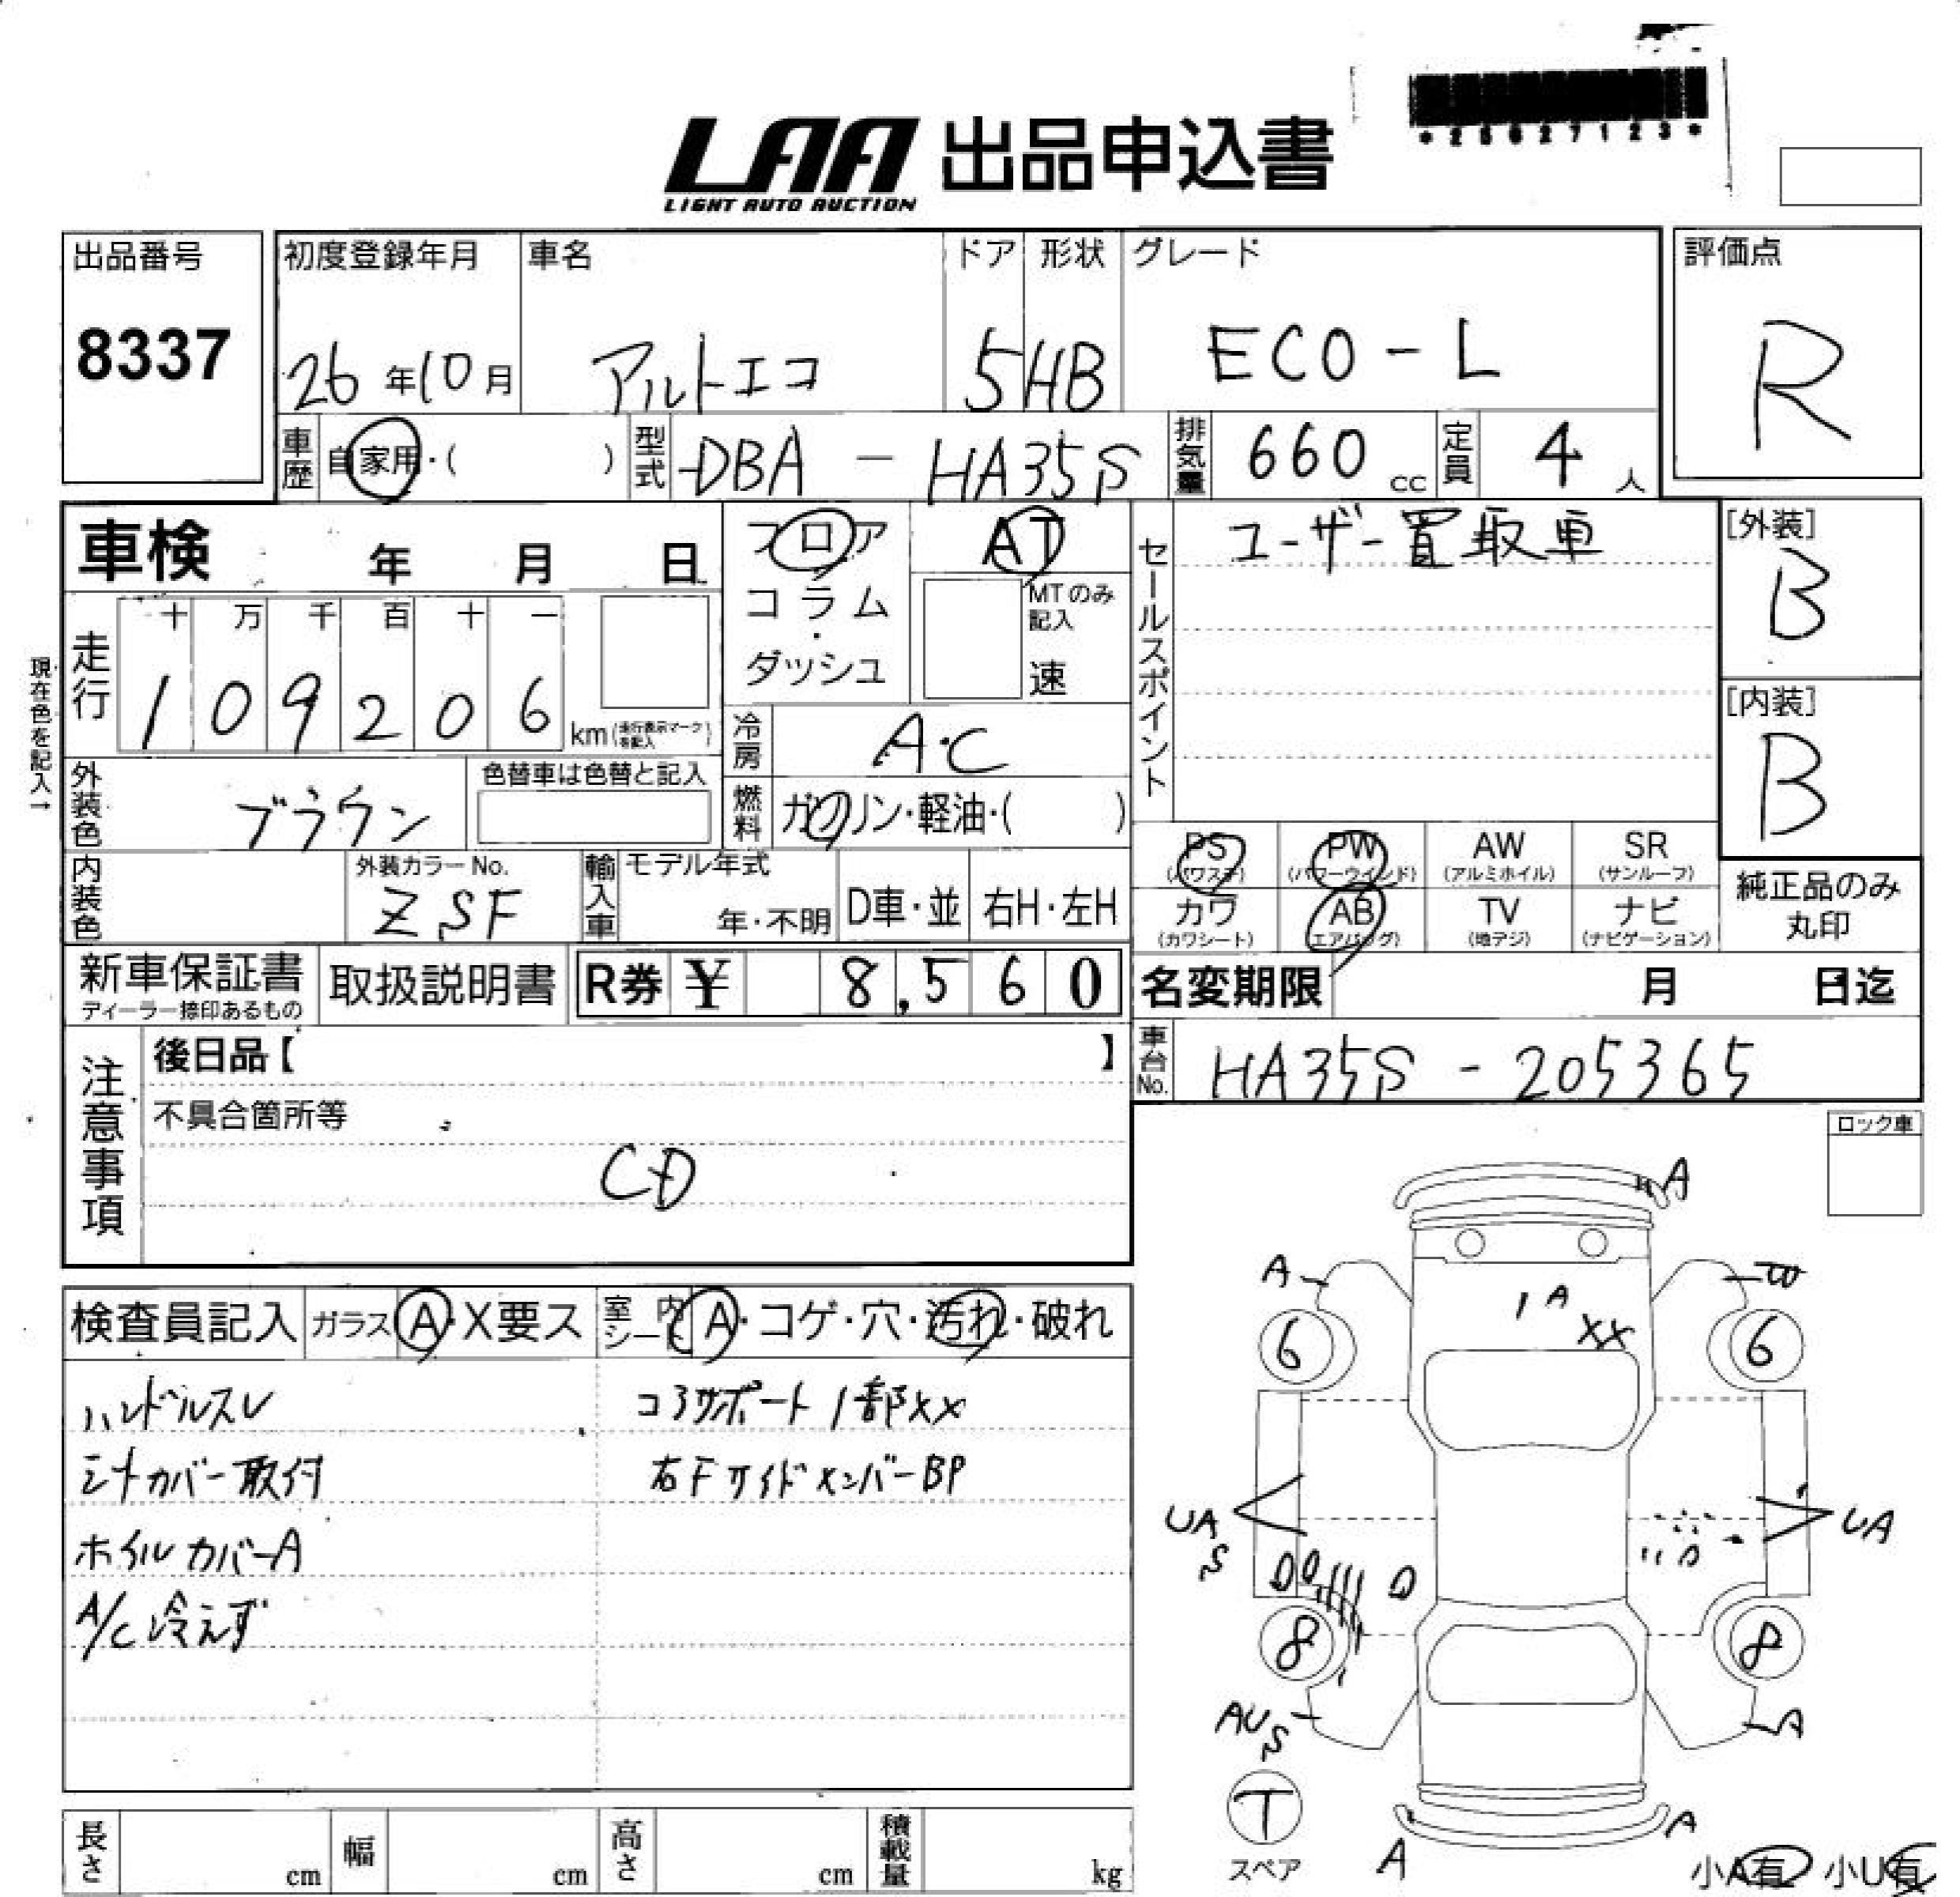 *25627123*
LAA 出品申込書
LIGHT AUTO AUCTION
出品番号 初度登録年月 車名 ドア 形状 グレード 評価点
8337 26年10月 アルトエコ 5 HB ECO-L R
車歴 自家用・( ) 型式 DBA - HA35S 排気量 660 cc 定員 4 人
車検 年 月 日 フロア AT セールスポイント ユーザー買取車 [外装]
B
コラム・ MTのみ記入
ダッシュ 速
現在色を記入→
走行 十 万 千 百 十 一
1 0 9 2 0 6 km(走行表示マークを記入)
[内装]
B
冷房 A・C
外装色 ブラウン 色替車は色替と記入 燃料 ガソリン・軽油・( )
PS (パワステ) PW (パワーウインド) AW (アルミホイル) SR (サンルーフ)
内装色 外装カラーNo. ZSF 輸入車 モデル年式 年・不明 D車・並 右H・左H
カワ (カワシート) AB (エアバッグ) TV (地デジ) ナビ (ナビゲーション)
純正品のみ
丸印
新車保証書 取扱説明書 R券 ¥ 8,560 名変期限 月 日迄
ディーラー捺印あるもの
注意事項 後日品【 】 車台No. HA35S - 205365
不具合箇所等
CD
ロック車
検査員記入 ガラス A・X要ス 室内シート A・コゲ・穴・汚れ・破れ
ハンドルスレ コアサポート1部XX
シートカバー取付 右FサイドメンバーBP
ホイルカバーA
A/C冷えず
A
A
1 A
XX
6 6
UA UA
S
D D D
8 8
AU A
S
T
スペア
A A
小A有 小U有
長さ cm 幅 cm 高さ cm 積載量 kg